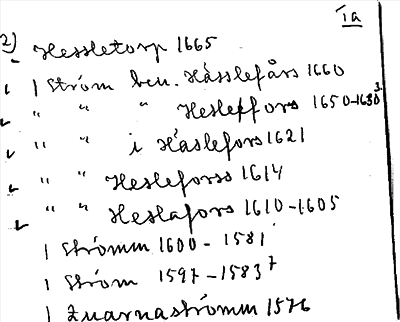 Ia
2) Hessletorp 1665
1 Ström ben. Hässlefårs 1660
" " " Hesleffors 1650-1630 3
" " i Häslefors 1621
" " Hesleforss 1614
" " Heslafors 1610-1605
1 Strömm 1600 - 1581
1 Ström 1597 - 1583 7
1 Quarnaströmm 1576